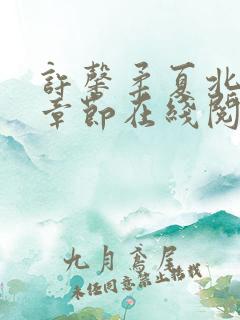 許馨柔夏北
章節在綫閱
九月鳶尾
未经同意禁止搭载